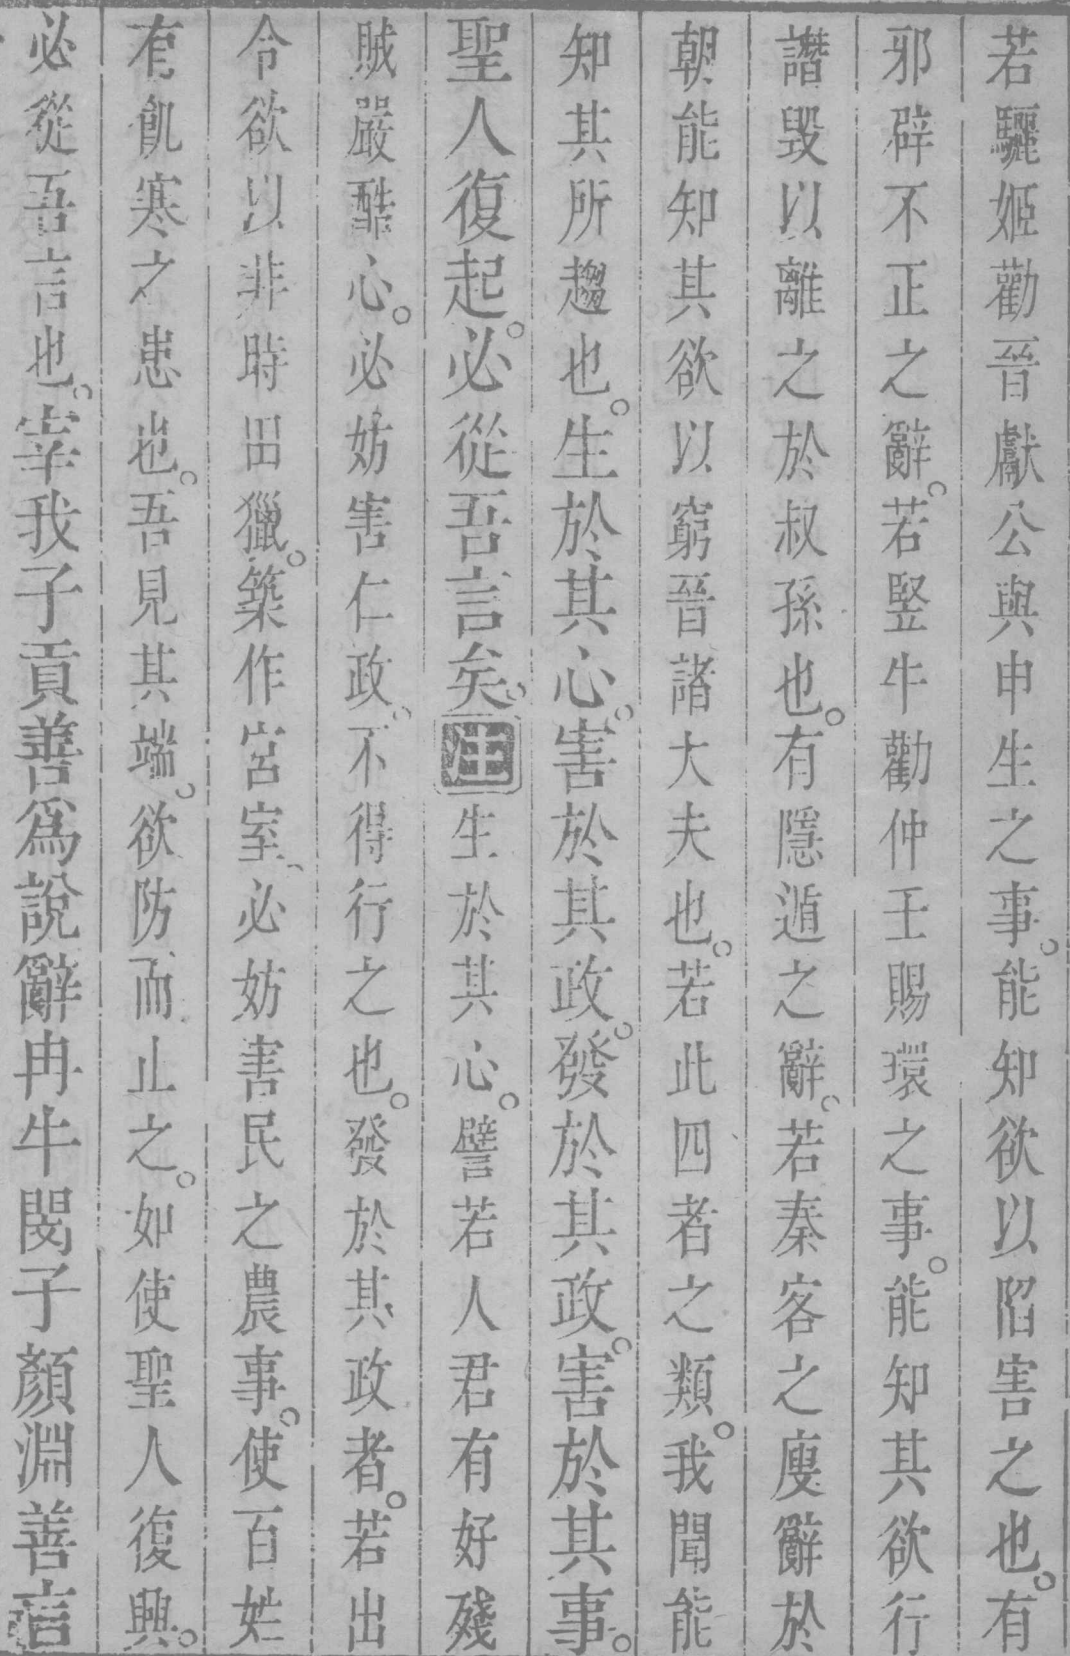 若驪姬勸晉獻公與申生之事。能知欲以陷害之也。有
邪辟不正之辭。若豎牛勸仲壬賜環之事。能知其欲行
譖毀以離之於叔孫也。有隱遁之辭。若秦客之廋辭於
朝能知其欲以窮晉諸大夫也。若此四者之類。我聞能
知其所趨也。生於其心。害於其政。發於其政。害於其事。
聖人復起。必從吾言矣。注生於其心。譬若人君有好殘
賊嚴酷心。必妨害仁政。不得行之也。發於其政者。若出
令欲以非時田獵。築作宮室、必妨害民之農事。使百姓
有飢寒之患也。吾見其端、欲防而止之。如使聖人復興。
必從吾言也。宰我子貢善爲說辭冉牛閔子顏淵善言